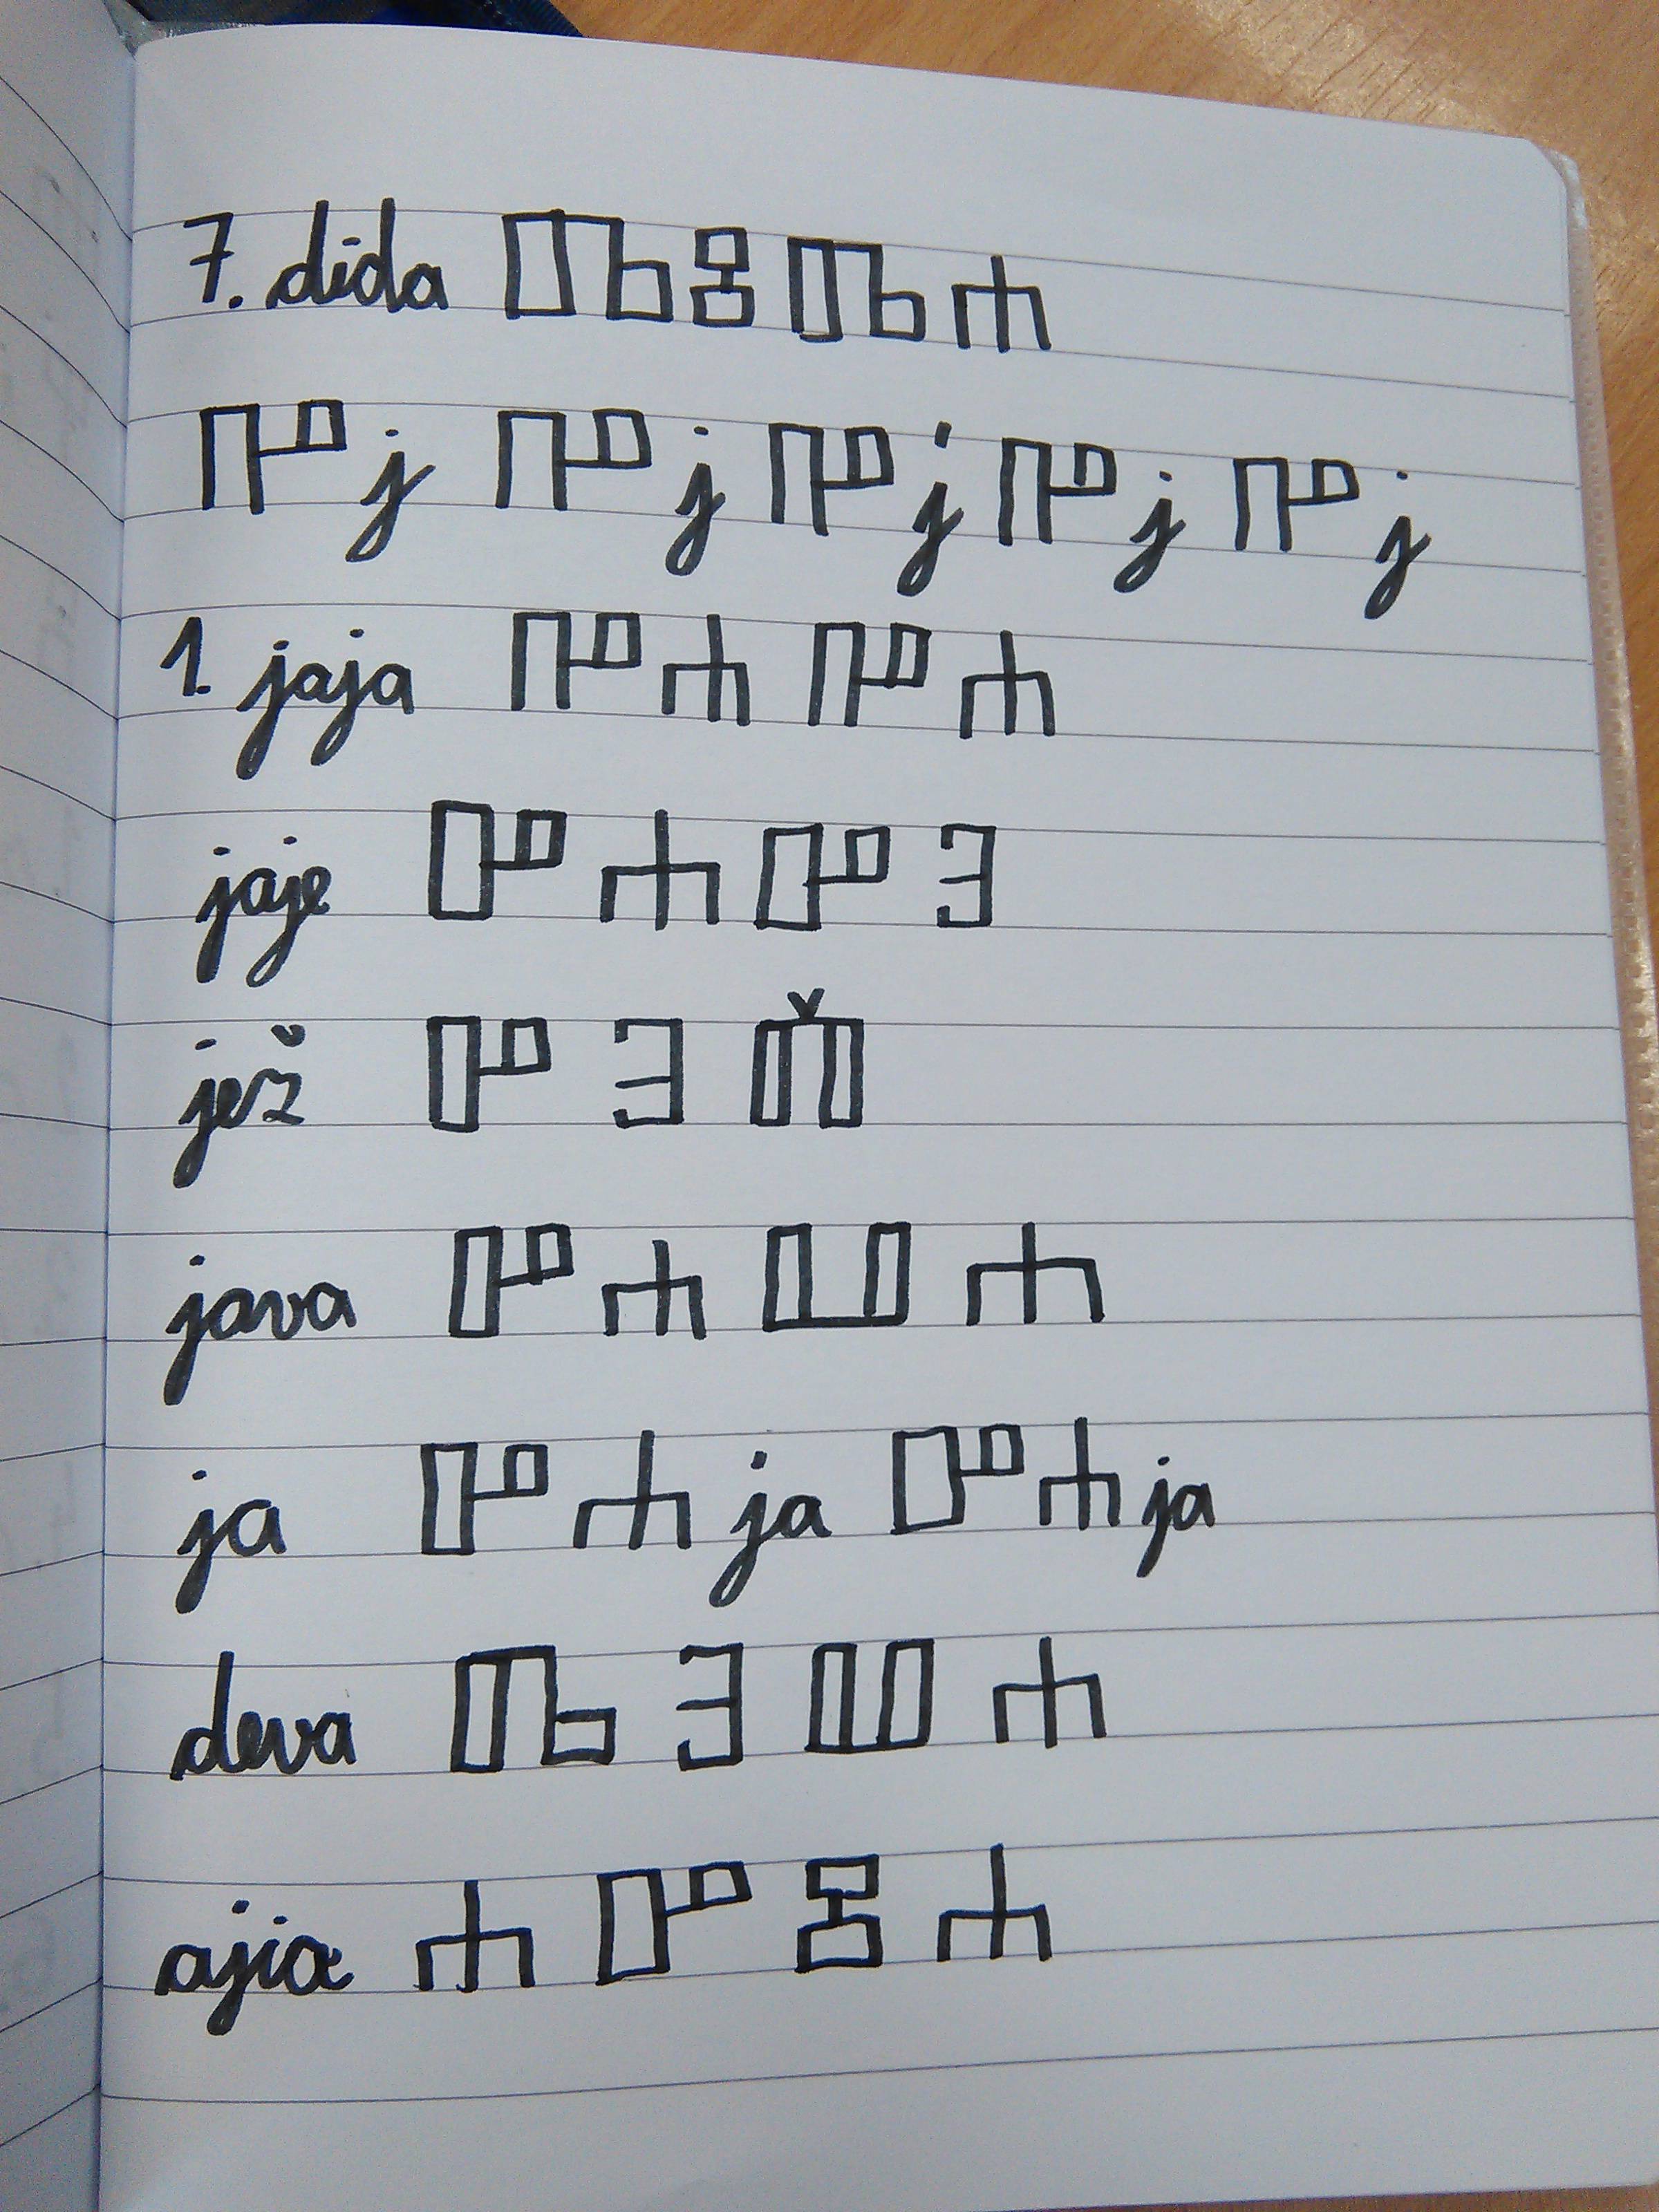 7. dida ⰄⰉⰄⰀ
Ⰼ j Ⰼ j Ⰼ j Ⰼ j Ⰼ j
1. jaja ⰌⰀⰌⰀ
jaje ⰌⰀⰌⰅ
jež ⰌⰅⰆ̌
java ⰌⰀⰂⰀ
ja ⰌⰀ ja ⰌⰀ ja
deva ⰄⰅⰂⰀ
ajia ⰀⰌⰉⰀ